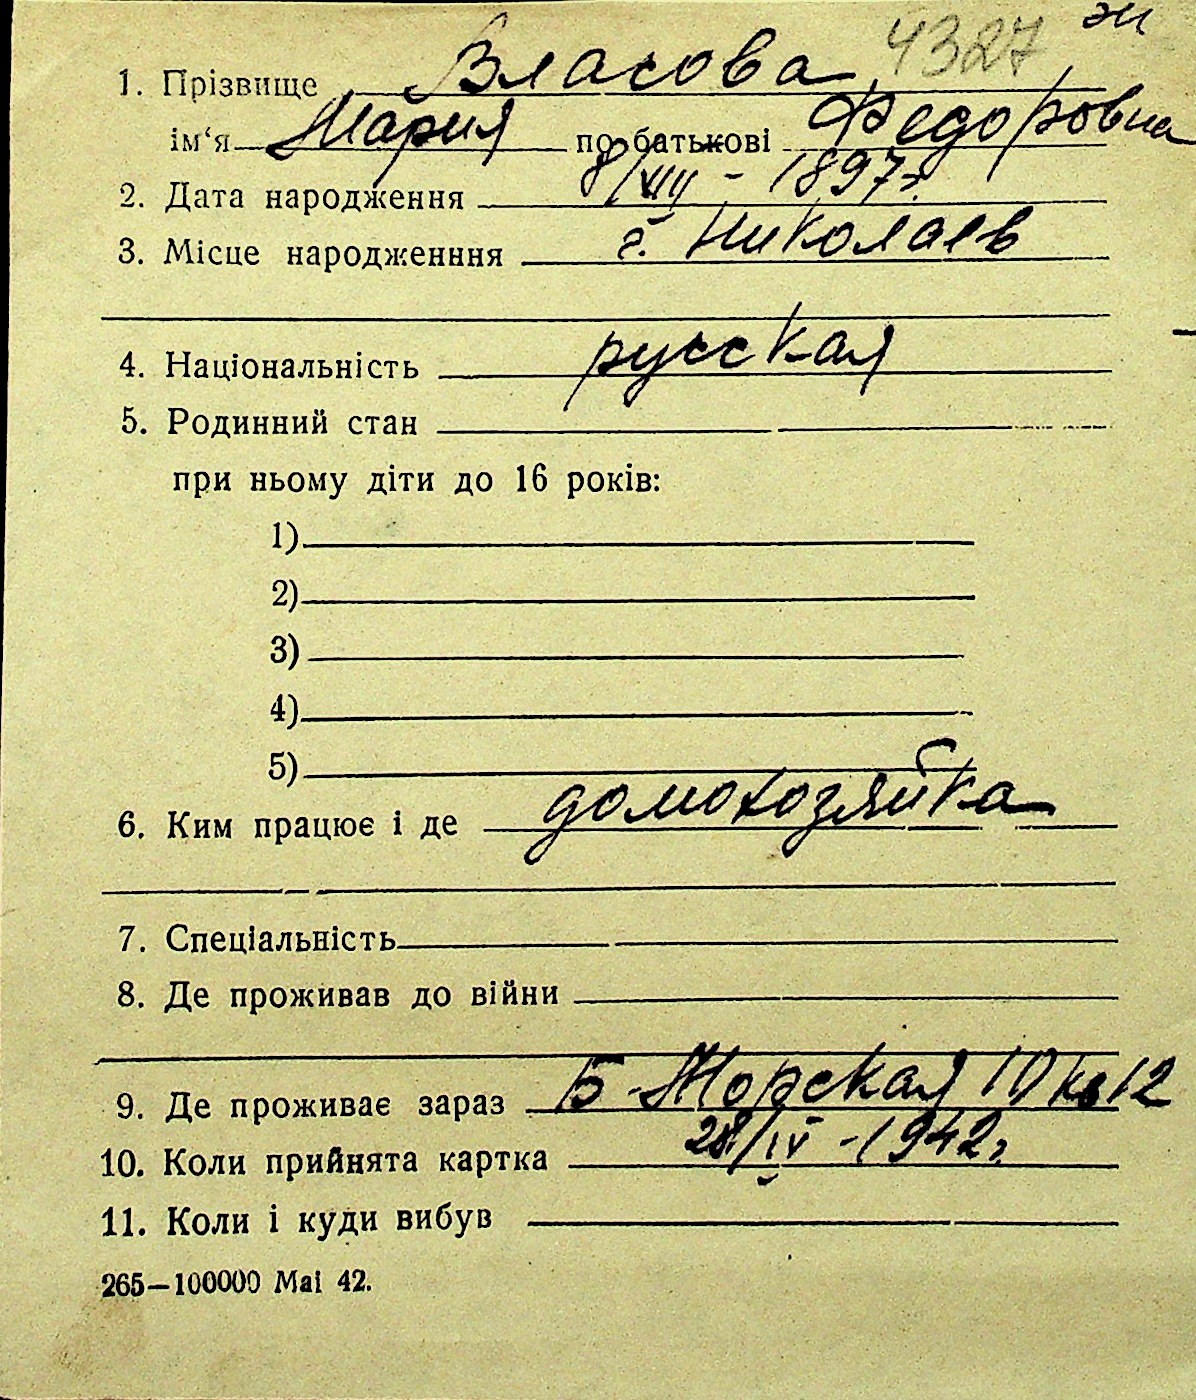 4327 эи
1. Прізвище Власова
ім‘я Мария по батькові Федоровна
2. Дата народження 8/VIII - 1897г.
3. Місце народженння г. Николаев
4. Національність русская
5. Родинний стан
при ньому діти до 16 років:
1)
2)
3)
4)
5)
6. Ким працює і де домохозяйка
7. Спеціальність
8. Де проживав до війни
9. Де проживає зараз Б Морская 10 кв 12
10. Коли прийнята картка 28/IV - 1942г.
11. Коли і куди вибув
265—100000 Маі 42.